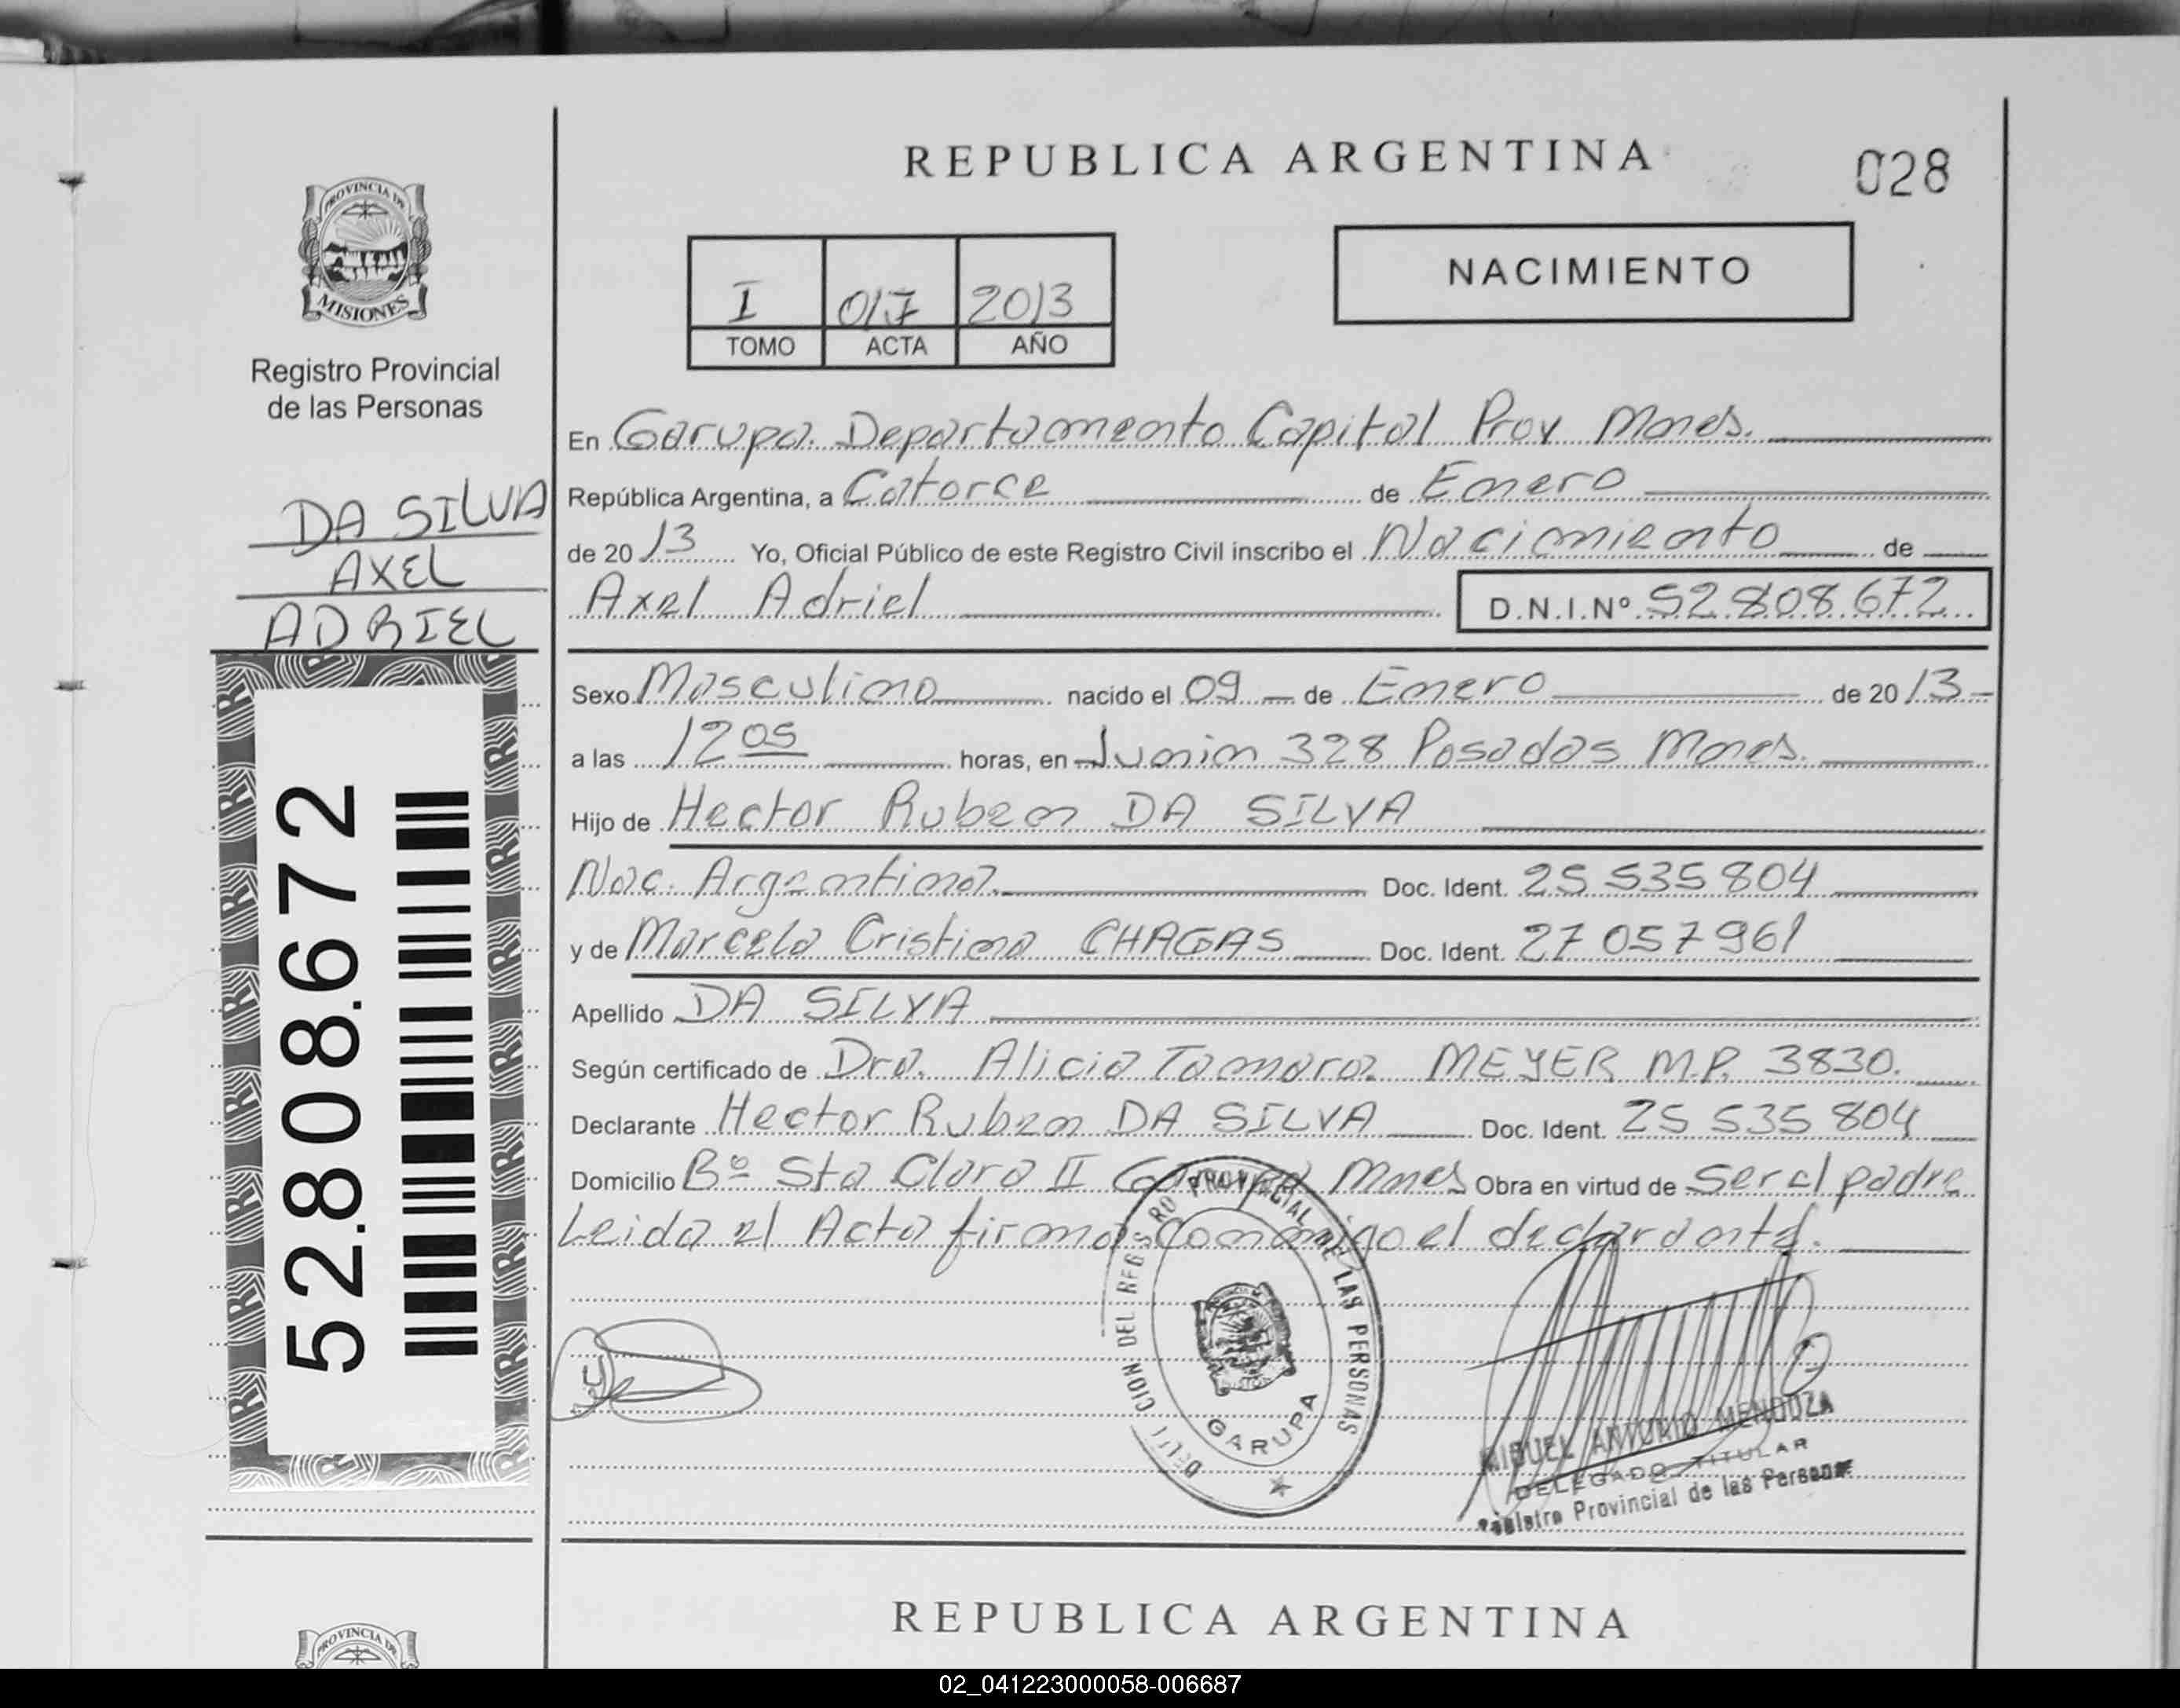 REPUBLICA ARGENTINA
028
PROVINCIA DE
MISIONES
Registro Provincial
de las Personas
DA SILVA
AXEL
ADRIEL
52.808.672
NACIMIENTO
I 017 2013
TOMO ACTA AÑO
En Garupa. Departamento Capital Prov Mnes.
República Argentina, a Catorce de Enero
de 20 13 Yo, Oficial Público de este Registro Civil inscribo el Nacimiento de
Axel Adriel D.N.I.Nº 52.808.672
Sexo Masculino nacido el 09 de Enero de 20 13
a las 12 05 horas, en Junin 328 Posadas Mnes.
Hijo de Hector Ruben DA SILVA
Nac. Argentina. Doc. Ident. 25 535 804
y de Marcela Cristina CHAGAS Doc. Ident. 27 057 961
Apellido DA SILVA
Según certificado de Dra. Alicia Tamara MEYER M.P. 3830.
Declarante Hector Ruben DA SILVA Doc. Ident. 25 535 804
Domicilio Bº Sta Clara II Garupa Mnes Obra en virtud de ser el padre
Leida el Acta firma conmigo el declarante.
PROVINCIAL DE LAS PERSONAS
GARUPA
MIGUEL ANTONIO MENDOZA
DELEGADO TITULAR
Registro Provincial de las Personas
REPUBLICA ARGENTINA
PROVINCIA DE
02_041223000058-006687